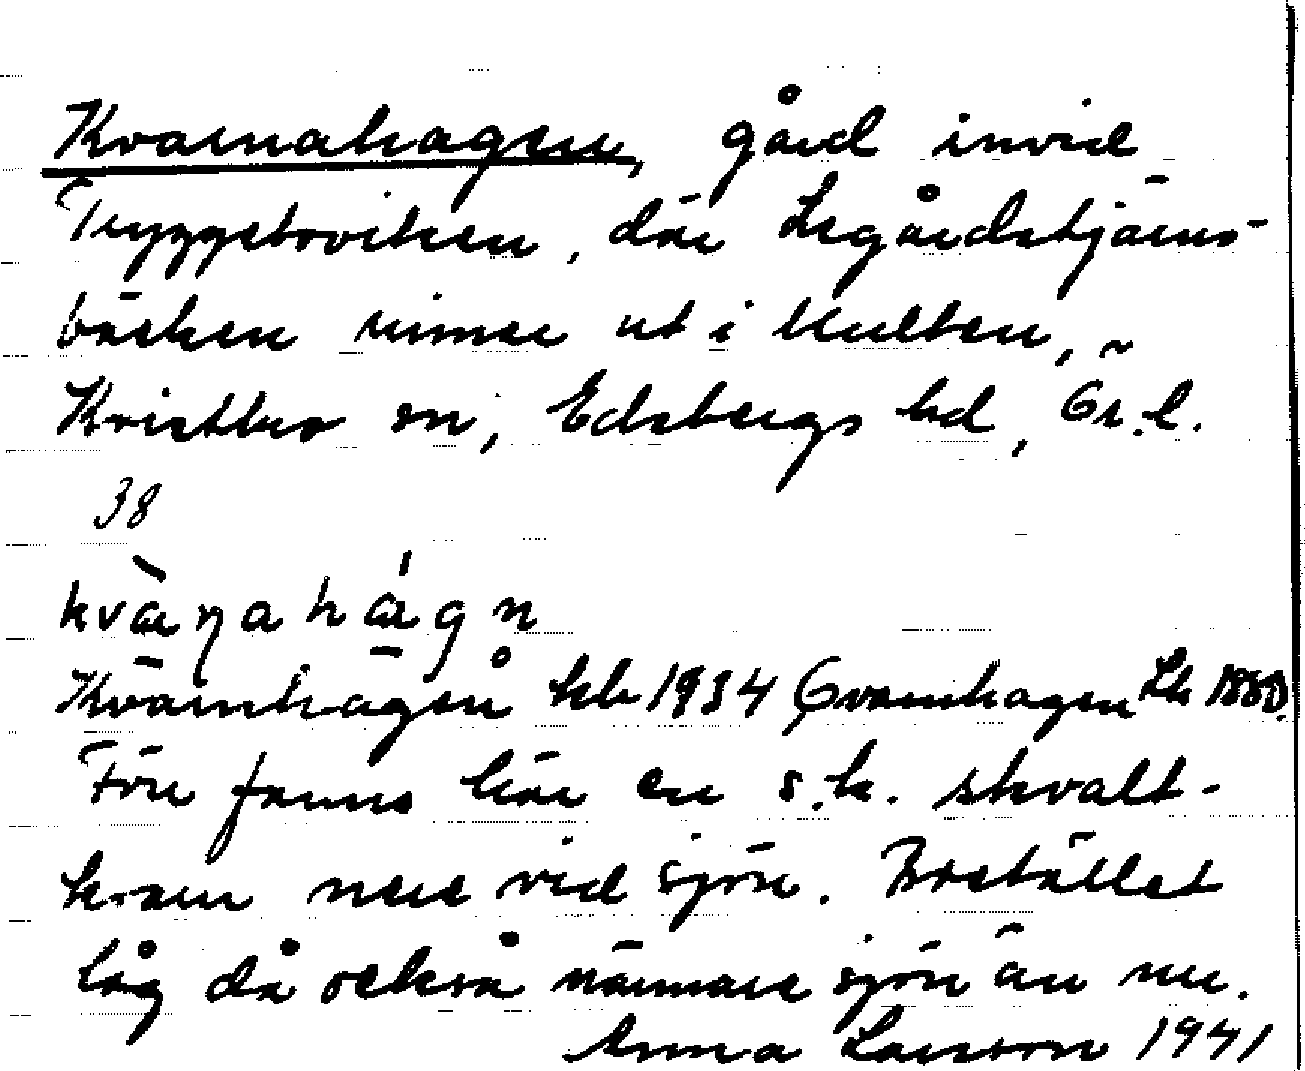 Kvarnahagen, gård invid
Tryggeboviken, där Legårdstjärns-
bäcken rinner ut i Multen,
Kvistbro sn, Edsbergs hd, Ör.l.
38
kvàɳa hágn
Kvarnhagen kb 1934 Qvarnhagen Lk 1880.
Förr fanns här en s.k. skvalt-
kvarn nere vid sjön. Bostället
låg då också närmare sjön än nu.
Anna Larsson 1941